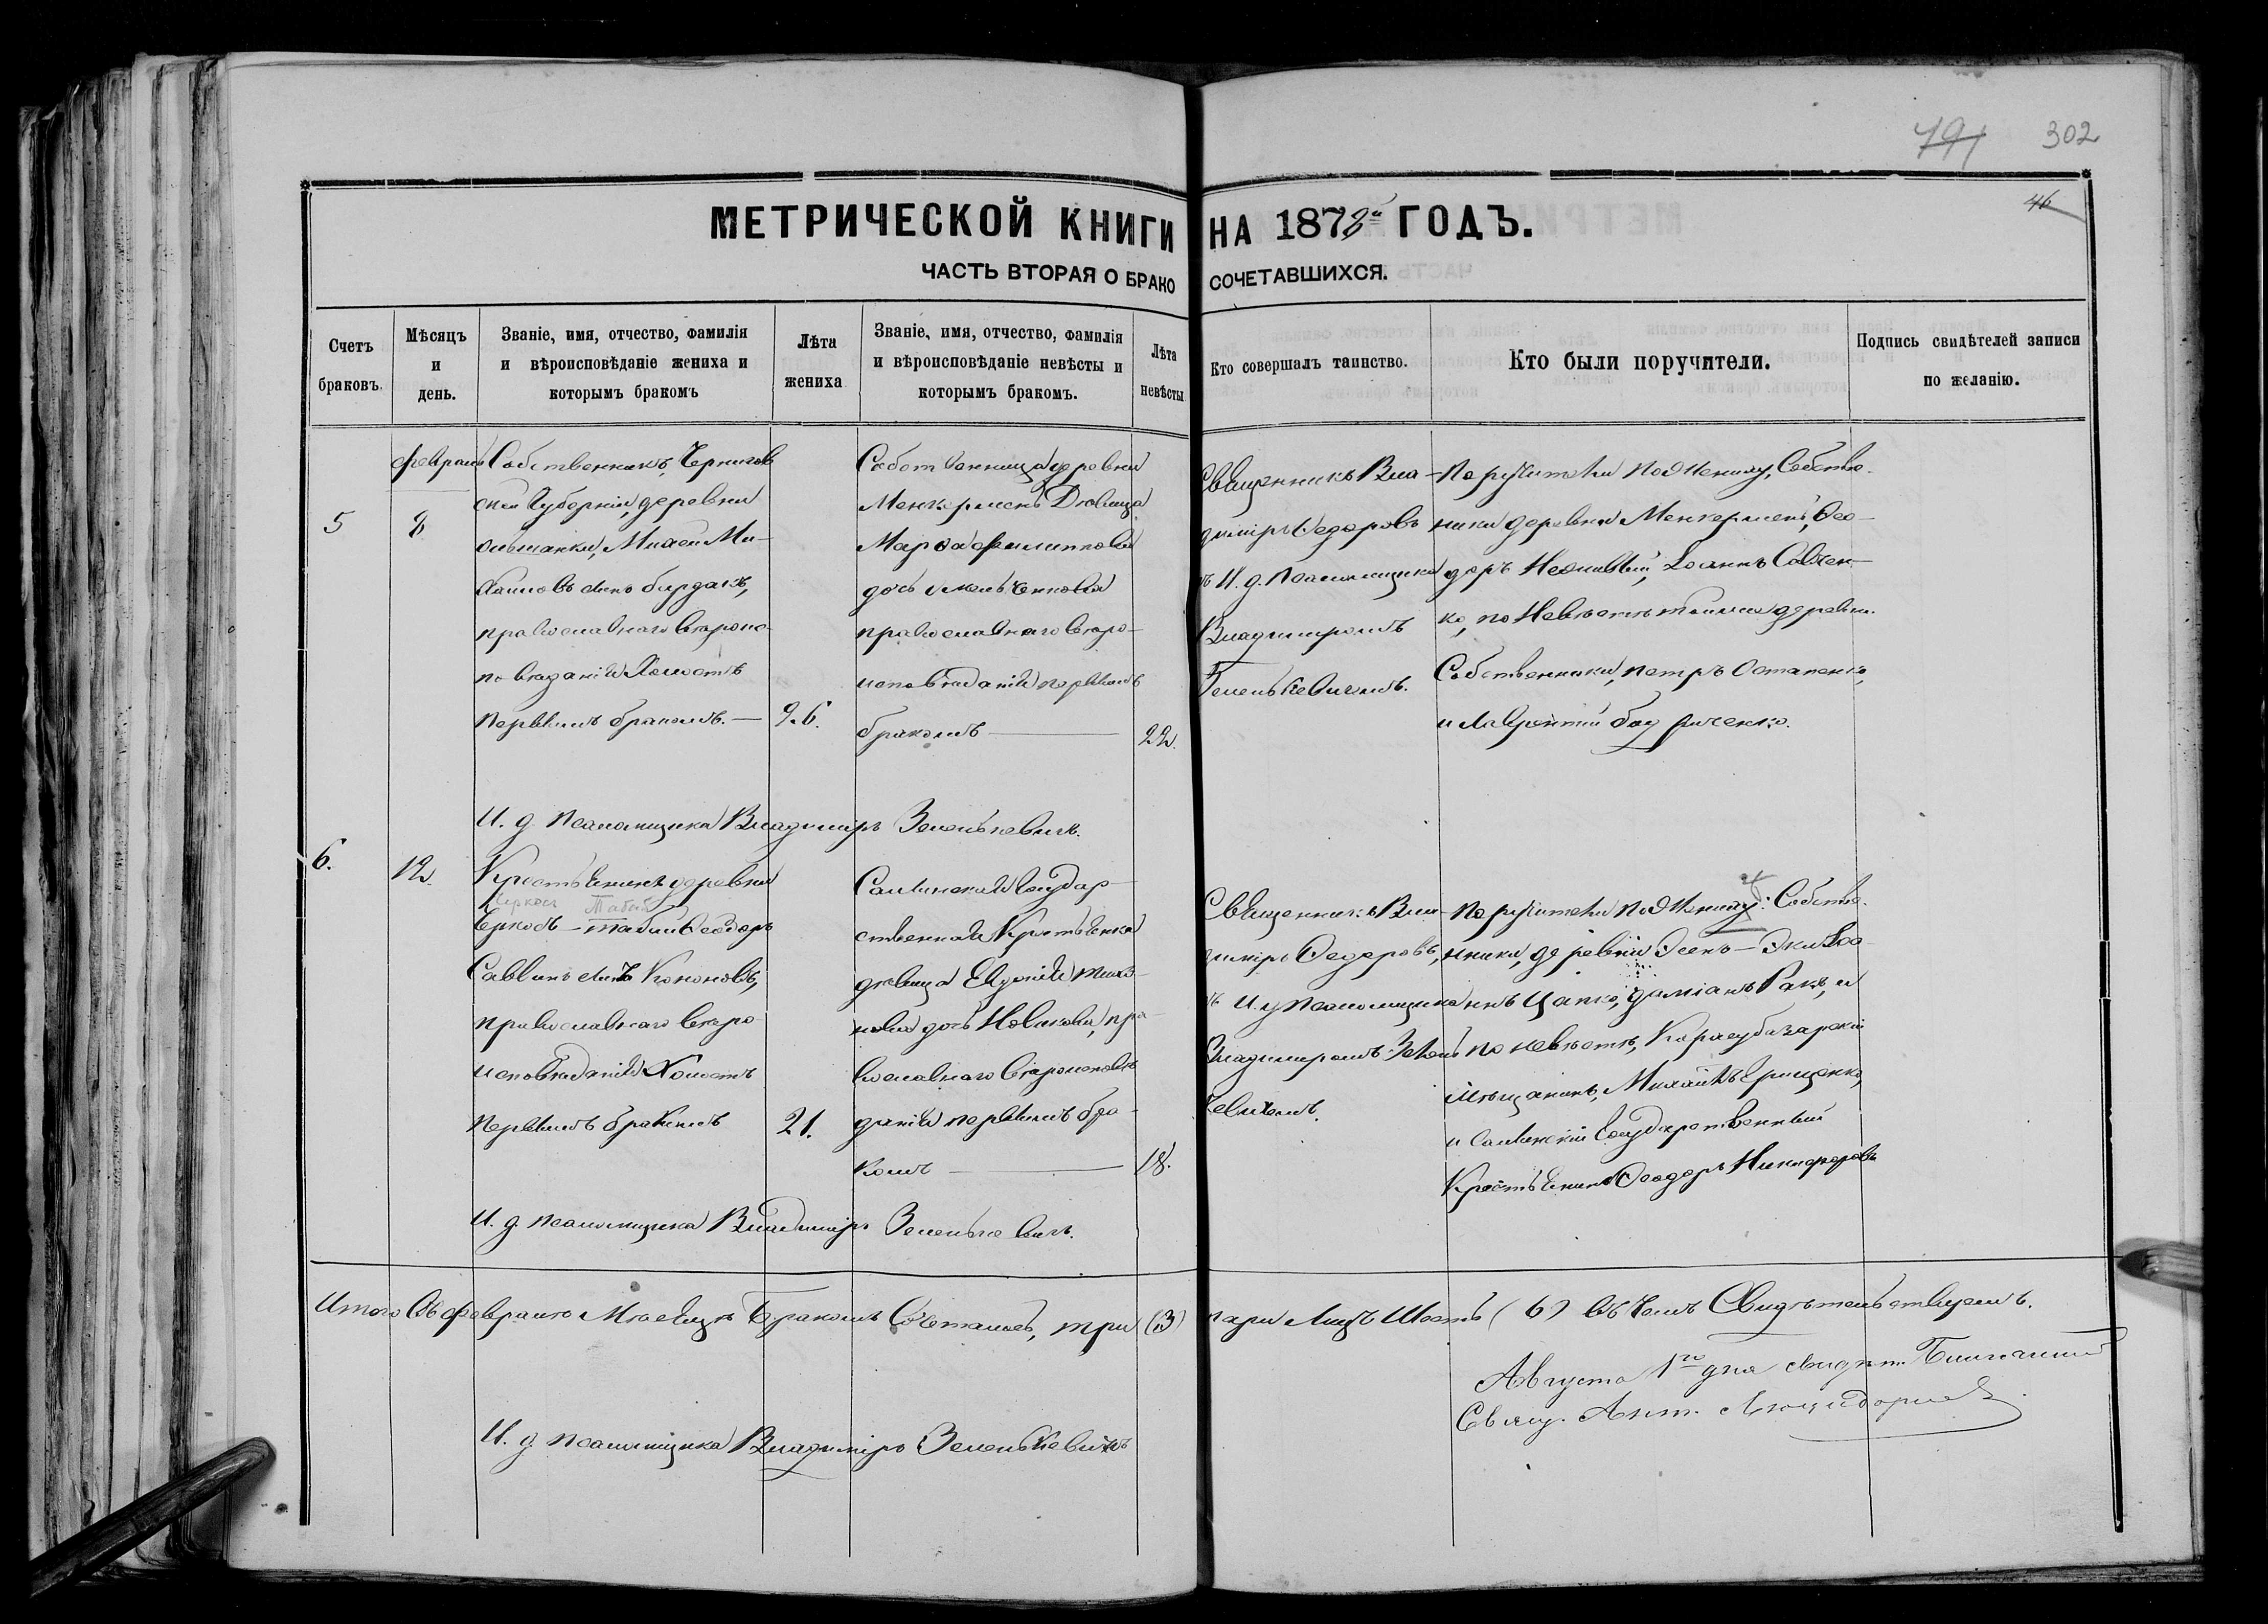 791 302
46
МЕТРИЧЕСКОЙ КНИГИ НА 1878й ГОДЪ.
ЧАСТЬ ВТОРАЯ О БРАКОСОЧЕТАВШИХСЯ.
Счетъ браковъ.
Мѣсяцъ и день.
Званіе, имя, отчество, фамилія и вѣроисповѣданіе жениха и которымъ бракомъ
Лѣта жениха
Званіе, имя, отчество, фамилія и вѣроисповѣданіе невѣсты и которымъ бракомъ.
Лѣта невѣсты
Кто совершалъ таинство.
Кто были поручители.
Подпись свидѣтелей записи по желанію.
5
февраль
8
Собственникъ, Чернигов
ской Губерніи, деревни
Ми-
хайловъ сынъ Бурдакъ,
православнаго вѣроис-
повѣданія Холостъ
первымъ бракомъ. —
26.
Собственница деревни
Менкерменъ Дѣвица
Марфа Филиппова
дочь
православнаго вѣро-
исповѣданія первымъ
бракомъ —
22.
Священникъ Вла-
диміръ Федоровъ
съ И. д. Псаломщика
Владимиромъ
Зеленькевичемъ.
Поручители по жениху, Собстве-
ники деревни Менкерменъ, Фео-
доръ Іоаннъ Савчен-
ко, по Невѣстѣ тойже деревни
Собственники, Петръ Остапенко,
и Лаврентій
И. д. Псаломщика Владимиръ Зеленькевичъ.
6.
12.
Крестьянинъ деревни
Черкесъ Табай
Черкесъ — Табай Феодоръ
Саввинъ сынъ Кононовъ,
православнаго вѣро-
исповѣданія Холостъ
первымъ бракомъ
21.
Саблинская Государ-
ственная Крестьянка
дѣвица Евдокія Тихо-
нова дочь Новикова, пра-
вославнаго вѣроисповѣ-
данія первымъ бра-
комъ —
18.
Священникъ Вла-
диміръ Федоровъ,
съ И. д. Псаломщика
Владимиромъ Зелень
кевичемъ.
Поручители по жениху: Собстве-
ники, деревни Эсенъ — Эки Іоа-
ннъ Цапко, Даміанъ Ракъ, и
по невѣстѣ, Карасубазарскій
мѣщанинъ, Михаилъ Грищенко,
и Саблинскій Государственный
Крестьянинъ Феодоръ Никифоровъ
И. д. псаломщика Владиміръ Зеленькевичъ.
Итого въ февралѣ Мѣсяцѣ Бракомъ Сочеталось, три (3) пары лицъ Шесть (6) въ чемъ Свидѣтельствуемъ.
Августа 1го дня свидѣт. Благочинный
Свящ. Ант.
И. д. псаломщика Владиміръ Зеленькевичъ